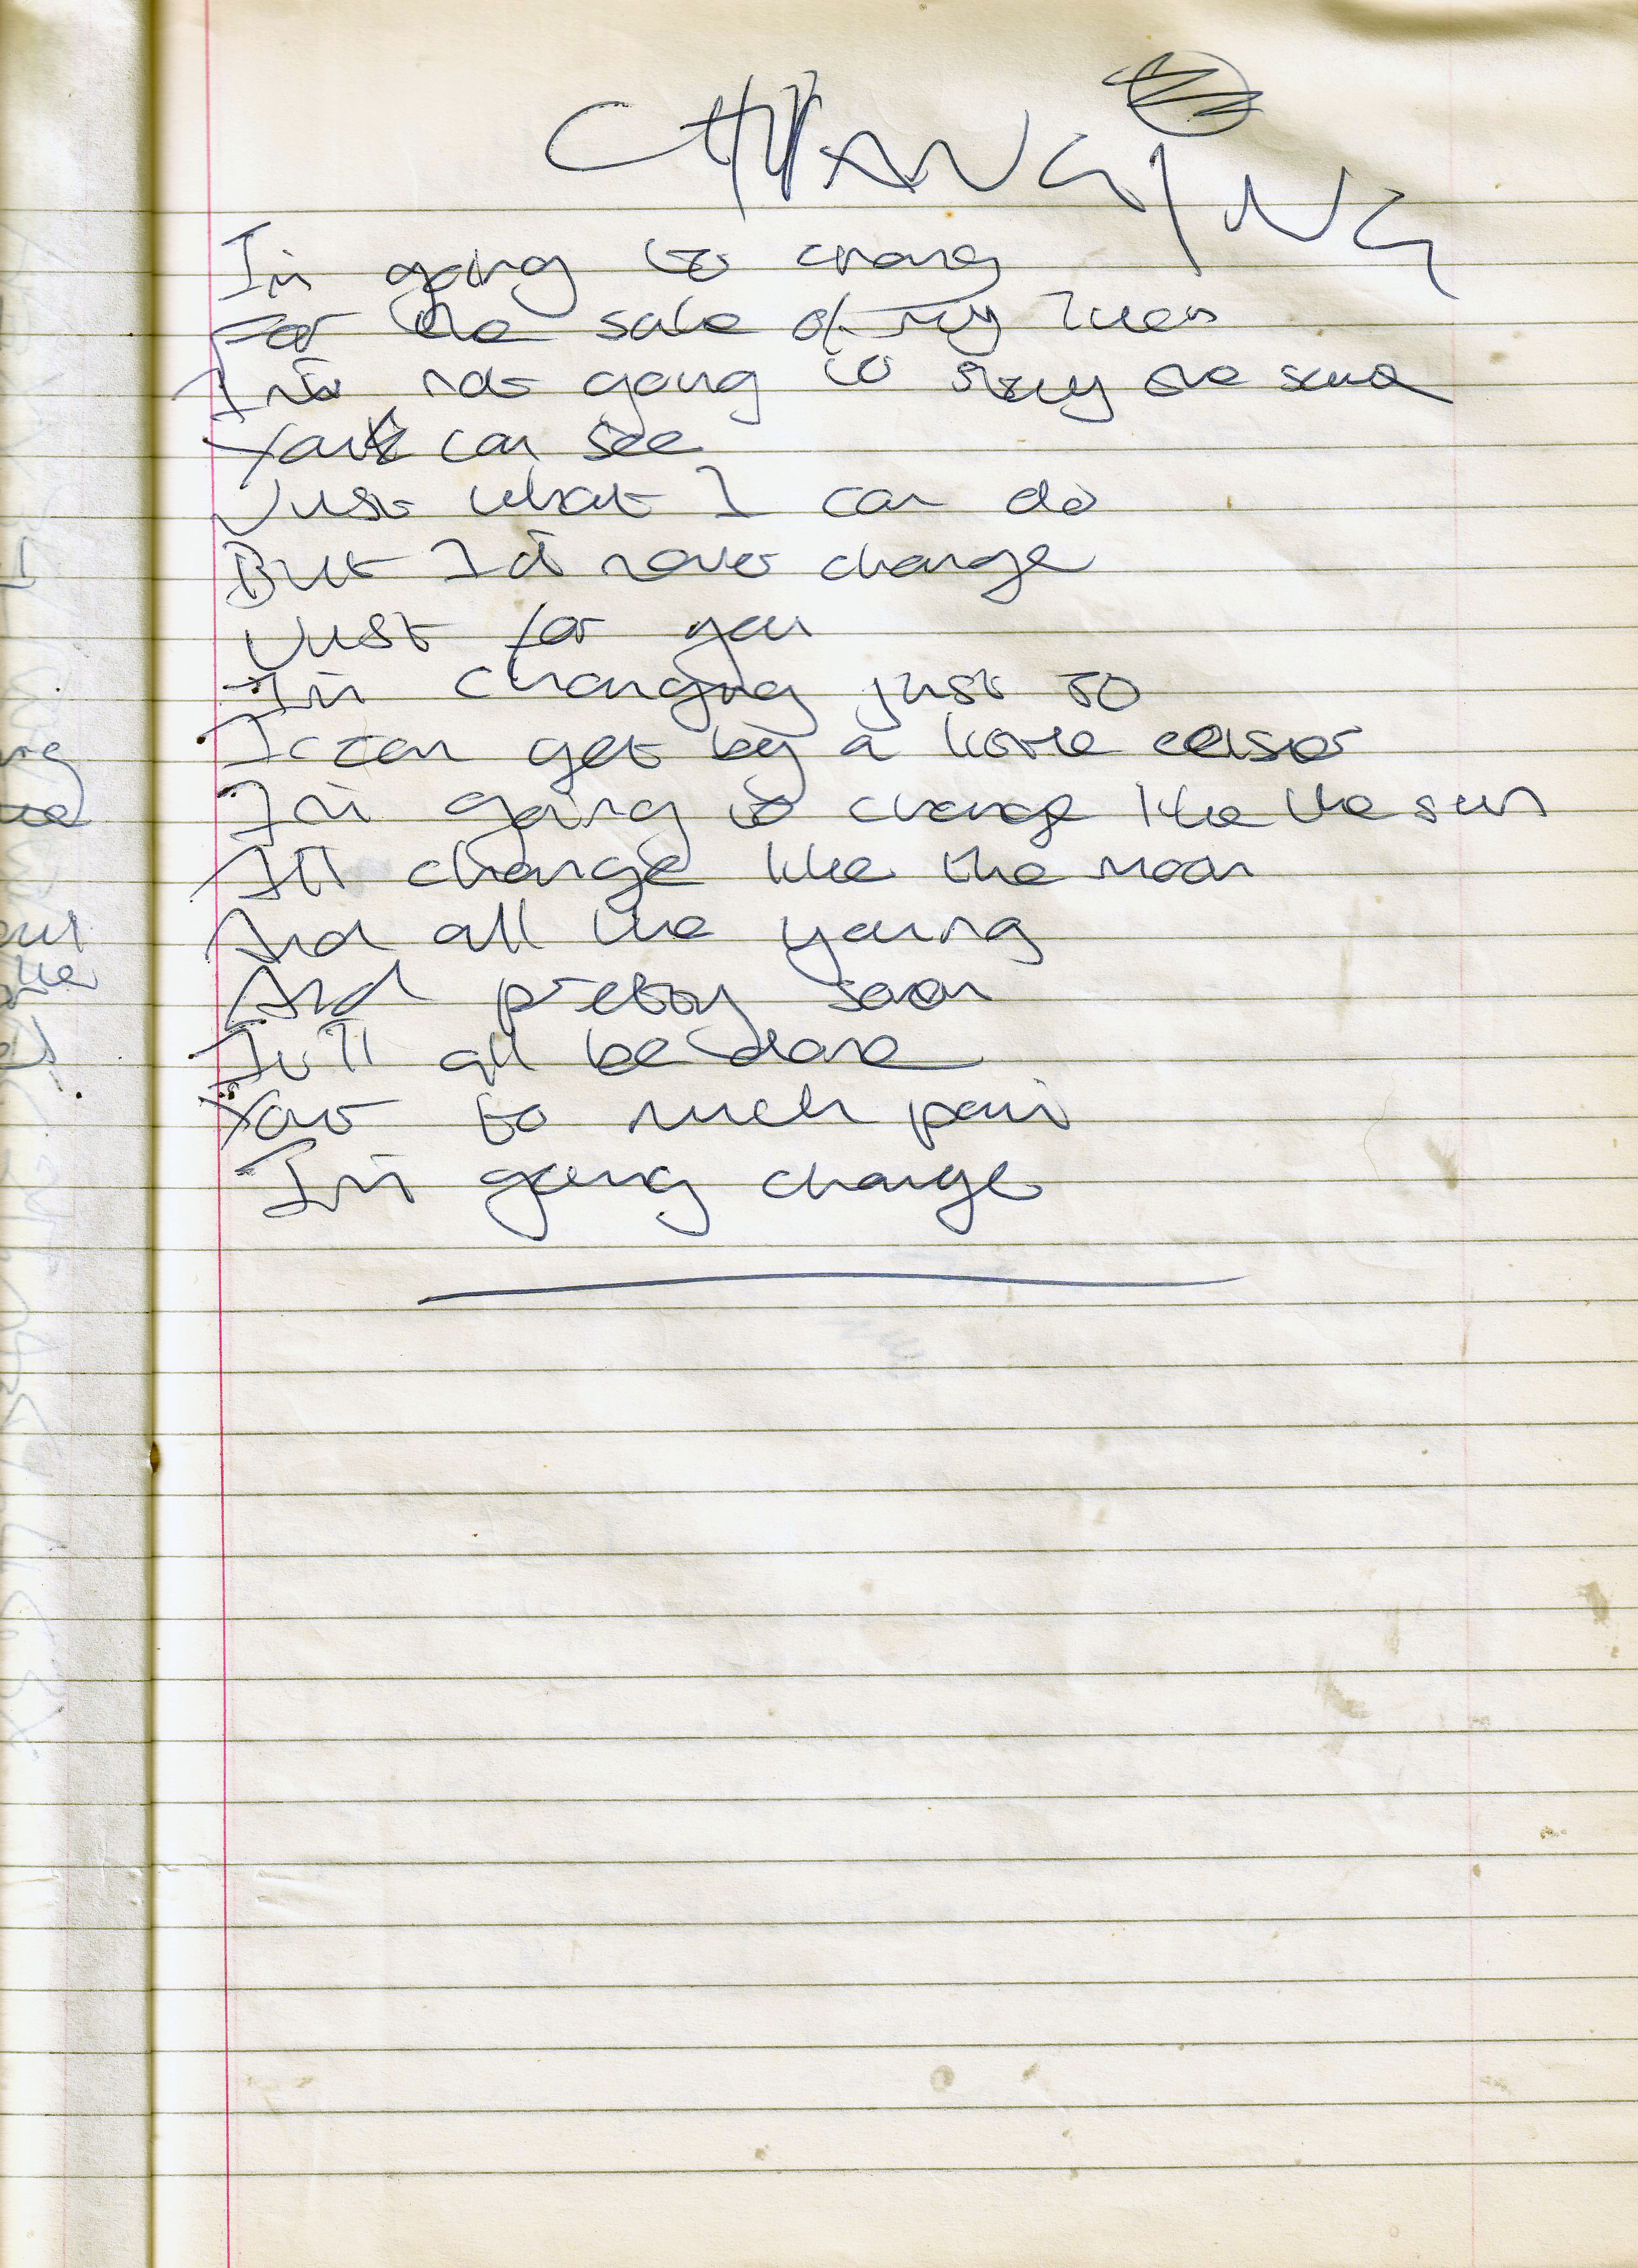 CHANGING
I'm going to chang
For the sake of my
I'm not going to stay the same
You can see
Just what I can do
But I'd never change
Just for you
I'm changing just so
I can get by a little easier
I'm going to change like the sun
I'll change like the moon
And all the young
And pretty soon
It'll all be done
Your to much pain
I'm going change